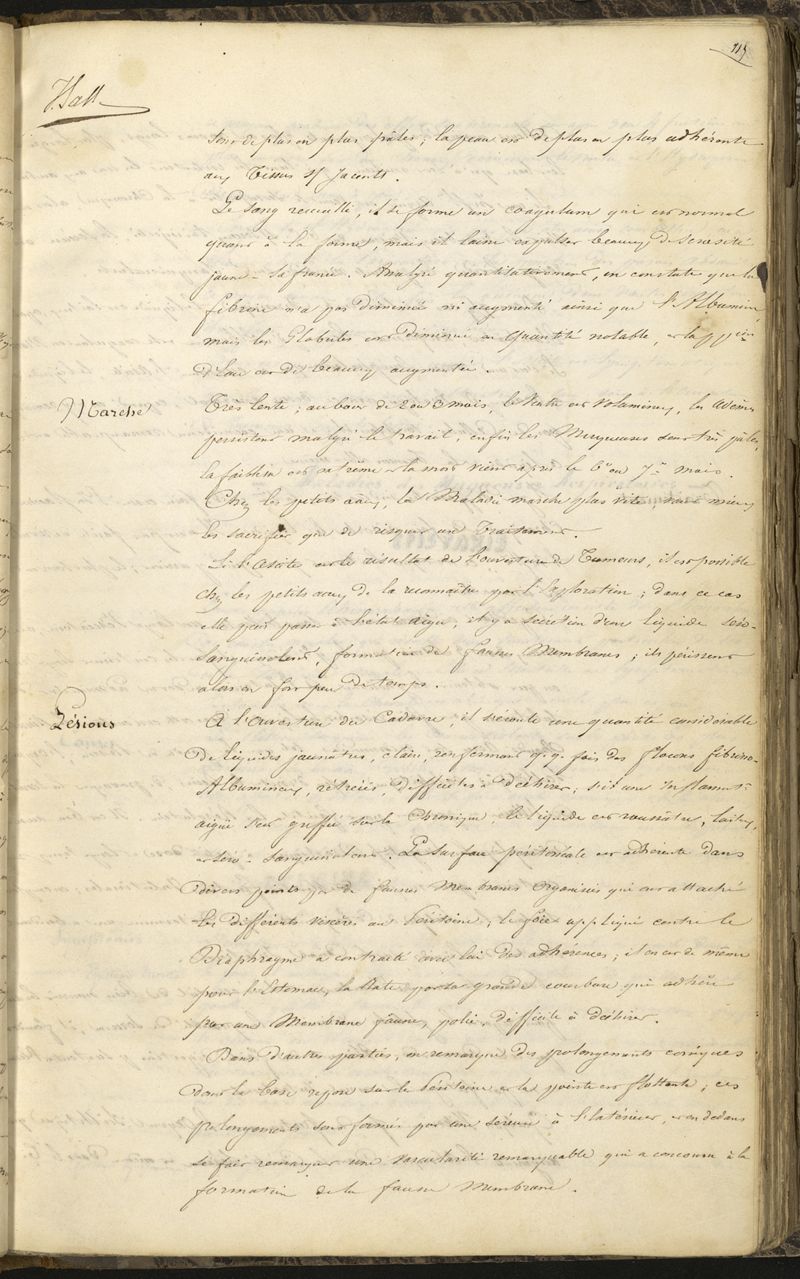 115
sont de plus en plus pâles ; la peau est de plus en plus adhérente
aux Tissus s/ Jacents.
Le sang recueilli, il se forme un coagulum qui est normal
quant à la forme, mais il laisse expulser beaucoup de sérosité
jaune-safranée. Analysé quantitativement, on constate que la
fibrine n'a pas diminué ni augmenté ainsi que l'Albumine
mais les Globules ont diminué en quantité notable, et la
d'Eau est de beaucoup augmentée.
Marche
Très lente ; au bout de 2 ou 3 mois, le Ventre est volumineux, les œdèmes
persistent malgré le travail, enfin les Muqueuses sont très pâles,
la faiblesse est extrême et la mort vient après le 6e ou 7e mois.
Chez les petits anx, la Maladie marche plus vite ; vaut mieux
les sacrifier que de risquer un Traitement.
Si l'Ascite est le résultat de l'ouverture de Tumeurs, il est possible
chez les petits anx de la reconnaître par l'Exploration ; dans ce cas
elle peut passer à l'état aigu, il y a sécrétion d'un liquide séro-
sanguinolent, formation de fausses Membranes ; ils périssent
alors en fort peu de temps.
Lésions
A l'Ouverture du Cadavre, il s'écoule une quantité considérable
de liquides jaunâtres, clairs, renfermant q.q. fois des flocons fibrino-
Albumineux, rétractés, difficiles à déchirer ; si une Inflammt.
aigüe s'est greffée sur la Chronique, le liquide est roussâtre, laiteux,
et séro-sanguinolent. La surface péritonéale est adhérente dans
divers points par de fausses Membranes organisées qui ont attaché
les différents viscères au Péritoine ; le foie appliqué contre le
Diaphragme a contracté avec lui des adhérences ; il en est de même
pour l'Estomac, la Rate par la grande courbure qui adhère
par une Membrane jaune, polie, difficile à déchirer.
Dans d'autres parties, on remarque des prolongements coniques
dont la base repose sur le Péritoine et la pointe est flottante ; ces
prolongements sont formés par une séreuse à l'Extérieur, et en dedans
se fait remarquer une vascularité remarquable qui a concouru à la
formation de la fausse Membrane.